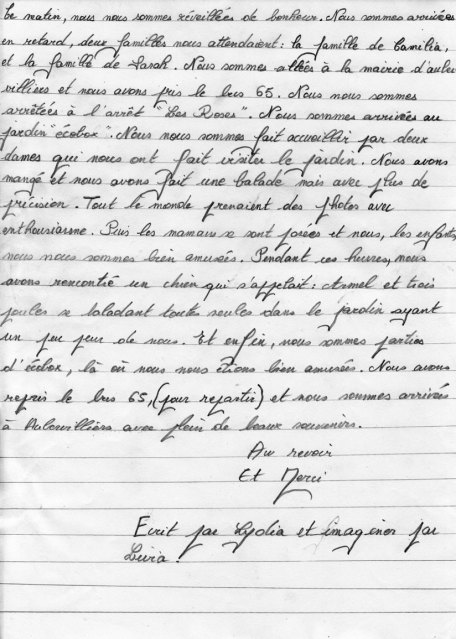 Ce matin, nous nous sommes réveillées de bonheur. Nous sommes arrivées
en retard, deux familles nous attendaient : la famille de Camilia,
et la famille de Sarah. Nous sommes allées à la mairie d'auber
villiers et nous avons pris le bus 65. Nous nous sommes
arrêtées à l'arrêt "Les Roses". Nous sommes arrivées au
jardin "écobox". Nous nous sommes fait accueillir par deux
dames qui nous ont fait visiter le jardin. Nous avons
mangé et nous avons fait une balade mais avec plus de
précision. Tout le monde prenaient des photos avec
enthousiasme. Puis les mamans se sont posées et nous, les enfants,
nous nous sommes bien amusés. Pendant ces heures, nous
avons rencontré un chien qui s'appelait : Armel et trois
poules se baladant toutes seules dans le jardin ayant
un peu peur de nous. Et enfin, nous sommes parties
d'écobox, là où nous nous étions bien amusées. Nous avons
repris le bus 65, (pour repartir) et nous sommes arrivées
à Aubervilliers avec plein de beaux souvenirs.
Au revoir
Et Merci
Ecrit par Lydia et imaginer par
Livia.